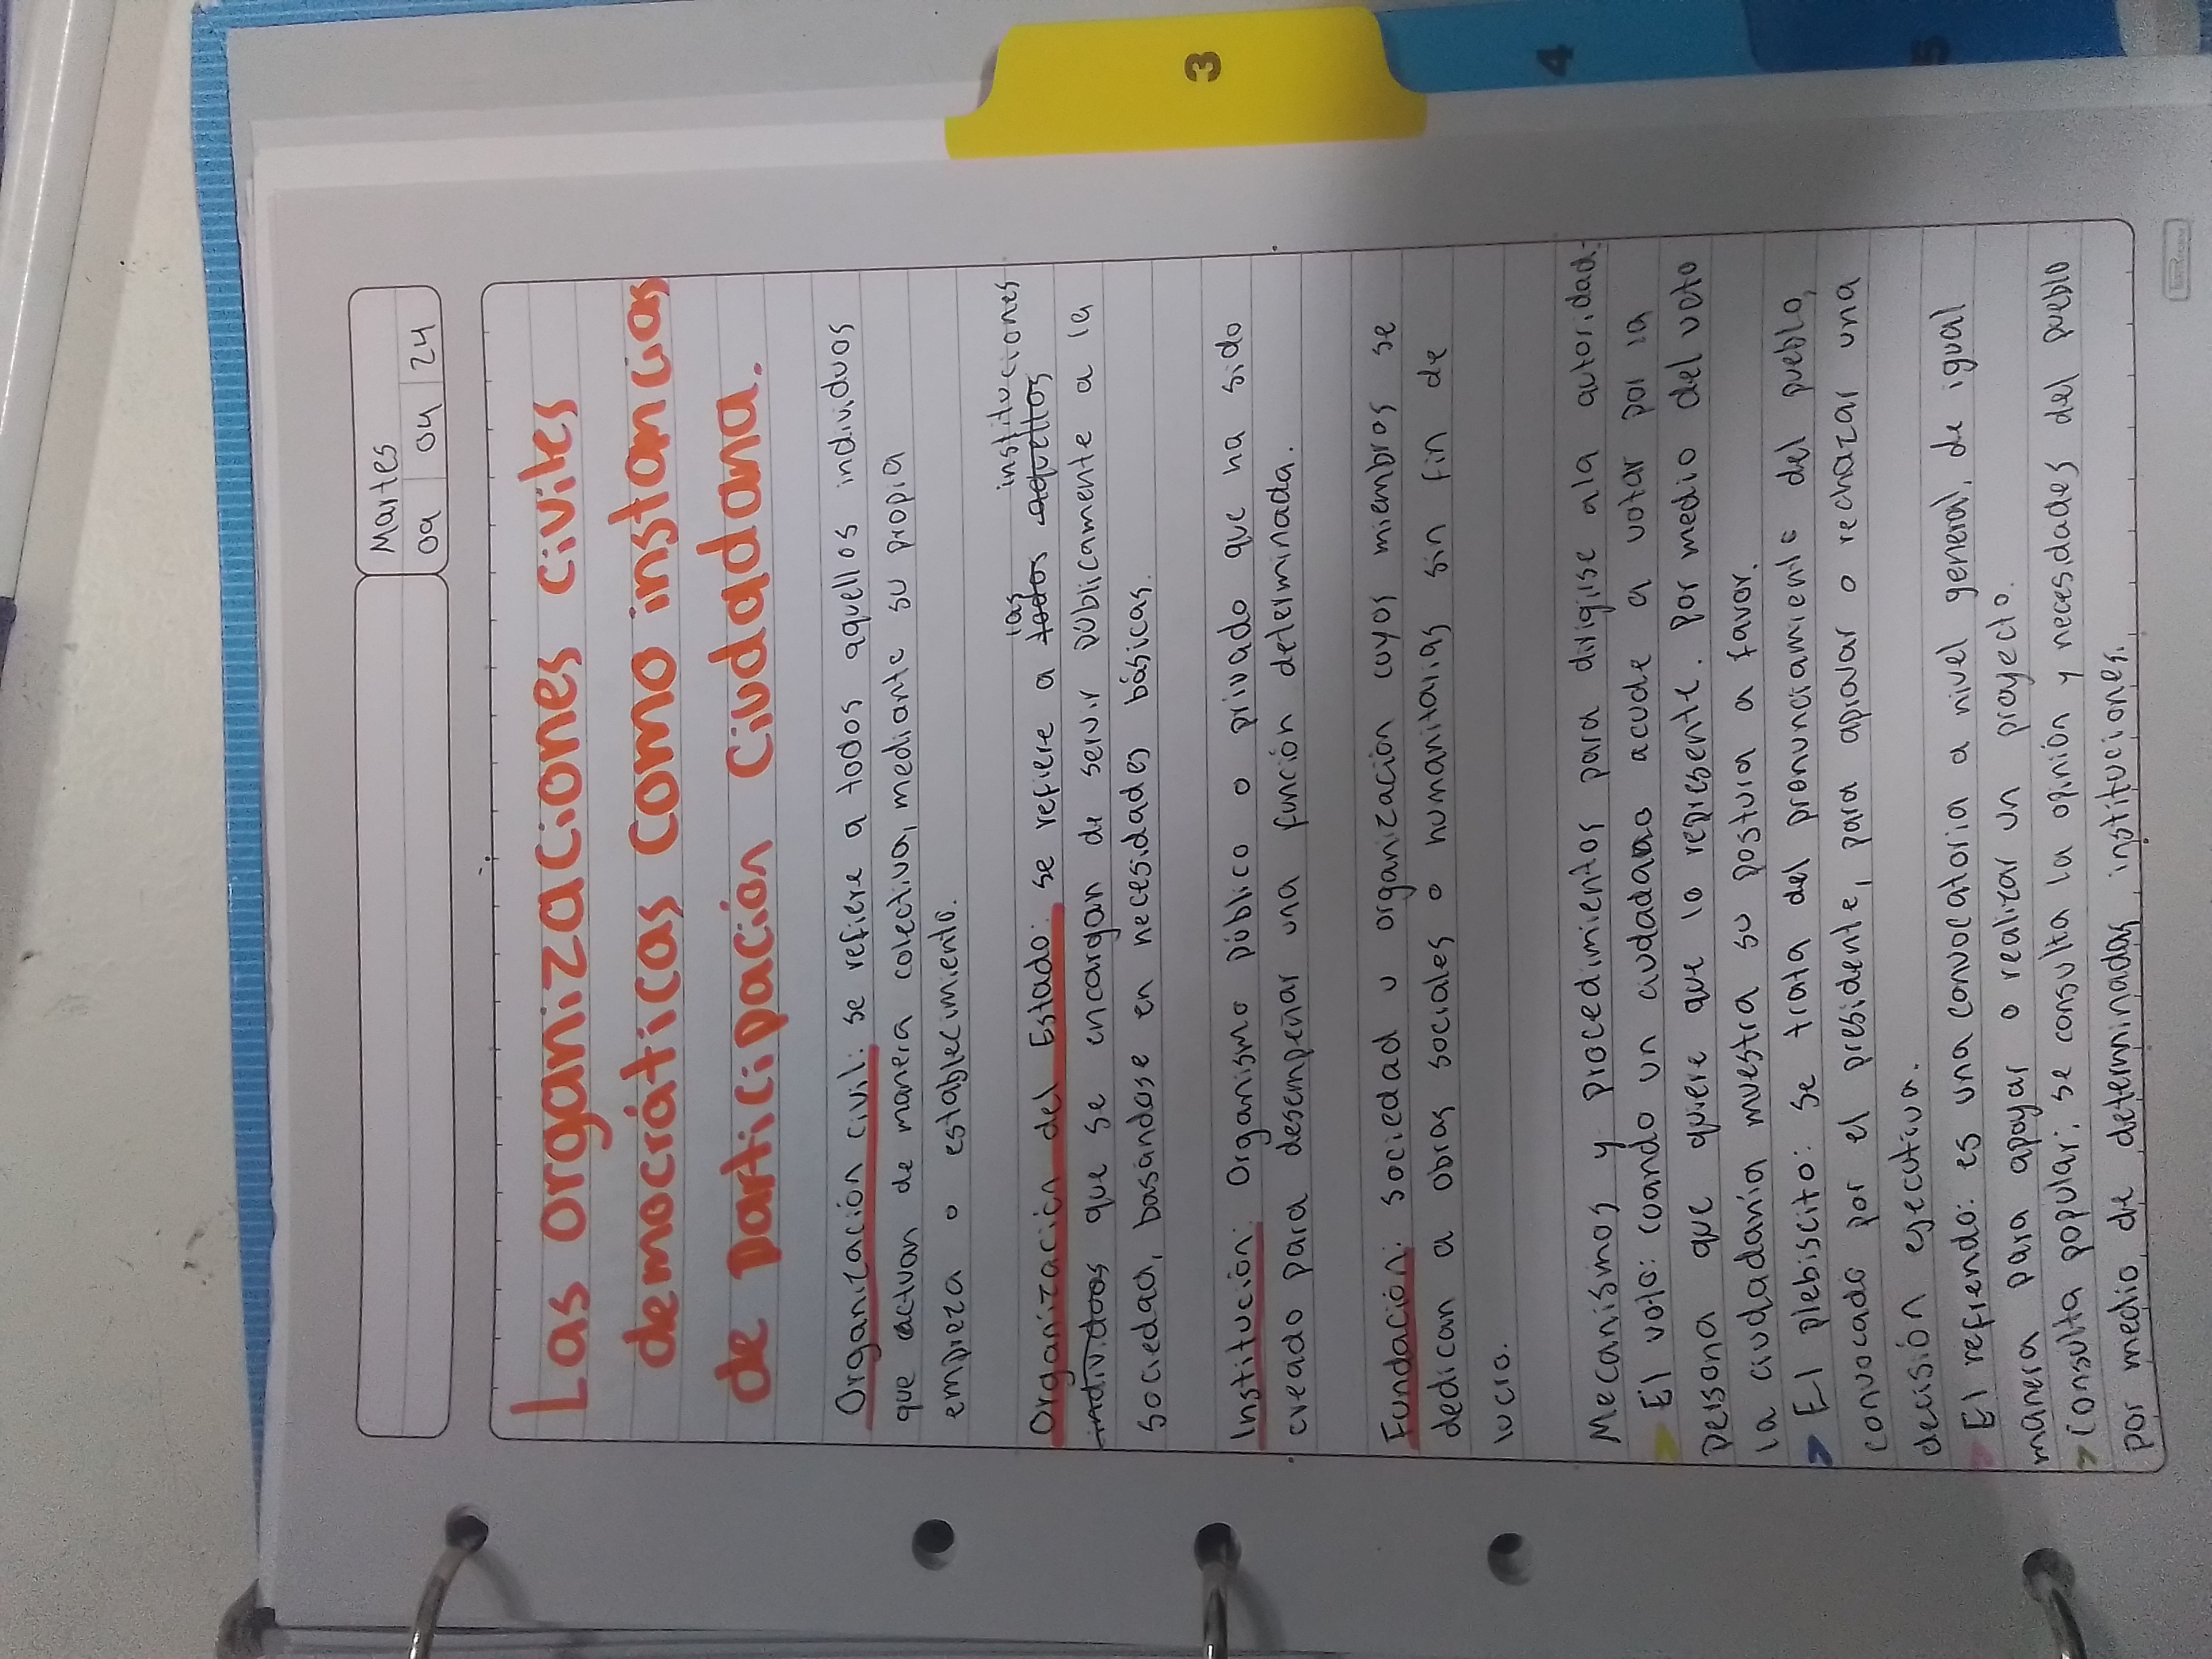 Martes
09 04 24
Las organizaciones civiles
democráticas como instancias
de participación ciudadana.
Organización civil: se refiere a todos aquellos individuos
que actuan de manera colectiva, mediante su propia
empreza o establecimiento.
las instituciones
Organización del Estado: se refiere a todos aquellos
individuos que se encargan de servir públicamente a la
sociedad, basandose en necesidades básicas.
Institución: Organismo público o privado que ha sido
creado para desempeñar una función determinada.
Fundación: sociedad u organización cuyos miembros se
dedican a obras sociales o humanitarias sin fin de
lucro.
Mecanismos y procedimientos para dirigirse ala autoridad.
El voto: cuando un ciudadano acude a votar por la
persona que quiere que lo represente. Por medio del voto
la ciudadanía muestra su postura a favor.
El plebiscito: se trata del pronunciamiento del pueblo,
convocado por el presidente, para aprovar o rechazar una
decisión ejecutiva.
El refrendo: es una convocatoria a nivel general, de igual
manera para apoyar o realizar un proyecto.
Consulta popular: se consulta la opinión y necesidades del pueblo
por medio de determinadas instituciones.
3
4
5